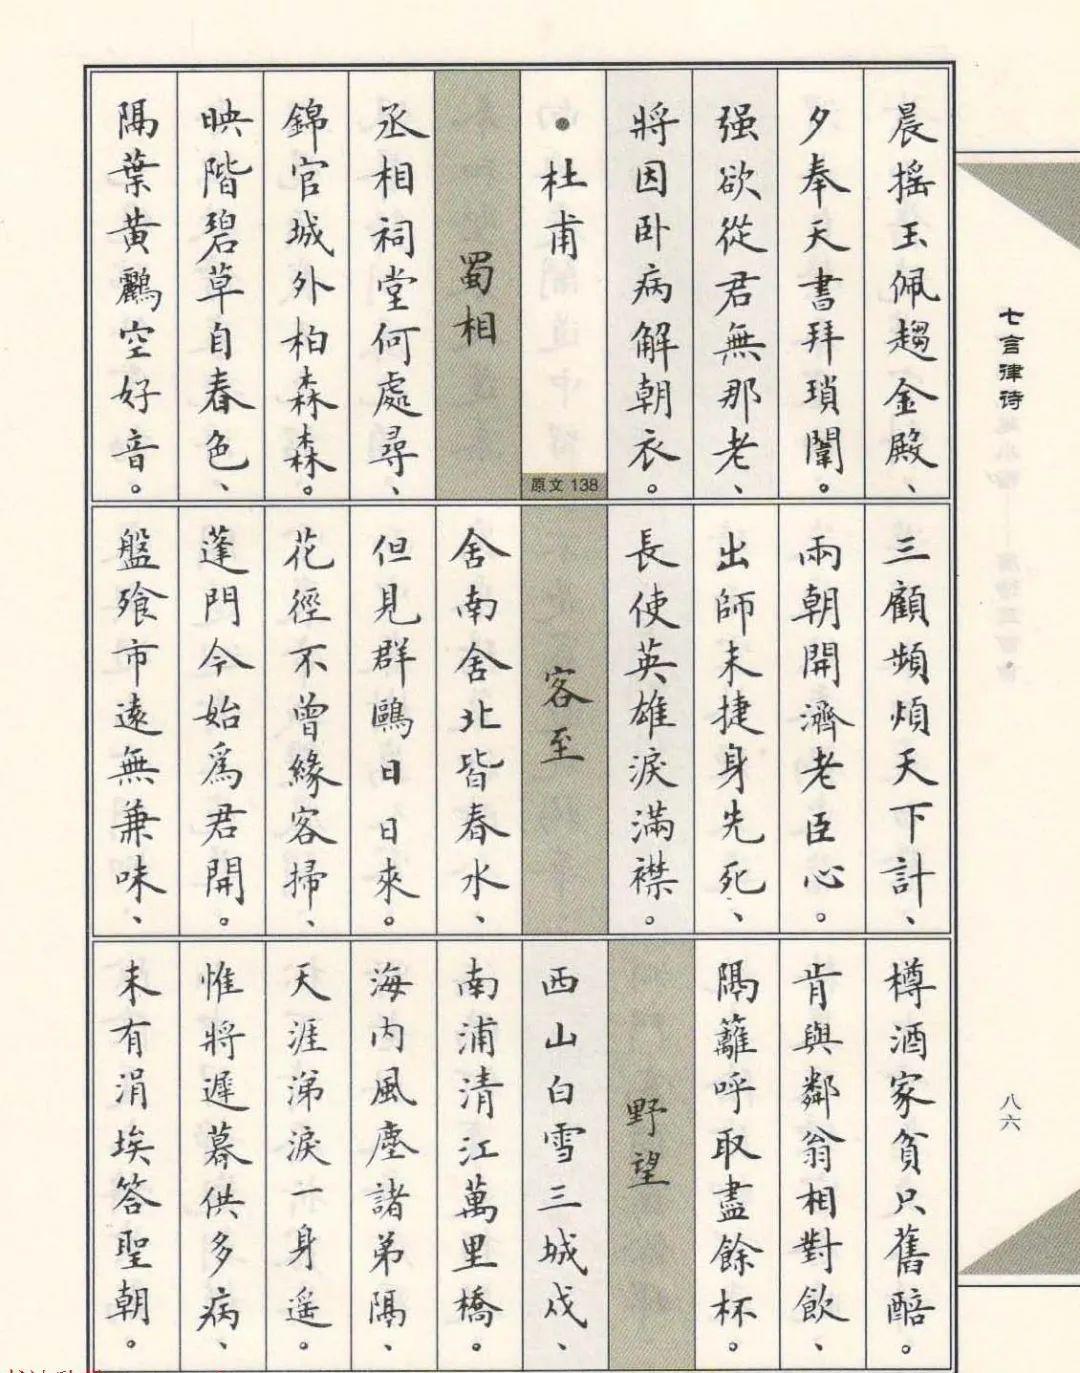 晨摇玉佩趨金殿、
夕奉天書拜瑣闈。
强欲從君無那老、
將因卧病解朝衣。
•杜甫
原文138
蜀相
丞相祠堂何處尋、
錦官城外柏森森。
映階碧草自春色、
隔葉黄鸝空好音。
三顧頻煩天下計、
兩朝開濟老臣心。
出師未捷身先死、
長使英雄淚滿襟。
客至
舍南舍北皆春水、
但見群鷗日日來。
花徑不曾緣客掃、
蓬門今始爲君開。
盤飱市遠無兼味、
樽酒家貧只舊醅。
肯與鄰翁相對飲、
隔籬呼取盡餘杯。
野望
西山白雪三城戍、
南浦清江萬里橋。
海内風塵諸弟隔、
天涯涕淚一身遥。
惟將遲暮供多病、
未有涓埃答聖朝。
七言律诗
八六